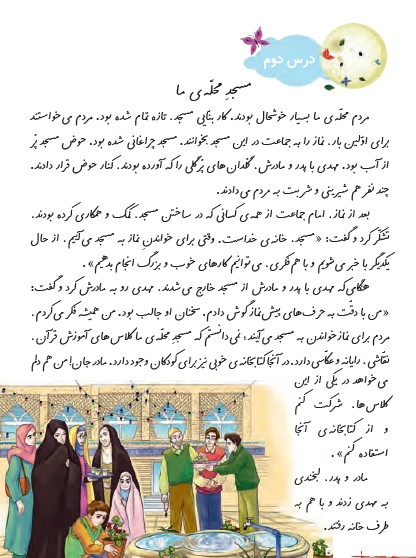 درس دوم
مسجد محلّه‌ی ما
مردم محلّه‌ی ما بسیار خوشحال بودند. کار بنایی مسجد، تازه تمام شده بود. مردم می‌خواستند
برای اوّلین بار، نماز را به جماعت در این مسجد بخوانند. مسجد چراغانی شده بود. حوض مسجد پُر
از آب بود. مهدی با پدر و مادرش، گلدان‌های پُرگلی را که آورده بودند، کنار حوض قرار دادند.
چند نفر هم شیرینی و شربت به مردم می‌دادند.
بعد از نماز، امام جماعت از همه‌ی کسانی که در ساختن مسجد، کمک و همکاری کرده بودند،
تشکّر کرد و گفت: «مسجد، خانه‌ی خداست. وقتی برای خواندنِ نماز به مسجد می‌آییم، از حال
یکدیگر با خبر می‌شویم و با هم فکری، می‌توانیم کارهای خوب و بزرگ انجام بدهیم».
هنگامی‌که مهدی با پدر و مادرش از مسجد خارج می‌شدند، مهدی رو به مادرش کرد و گفت:
«من با دقّت به حرف‌های پیش نماز گوش دادم. سخنان او جالب بود. من همیشه فکر می‌کردم،
مردم برای نماز خواندن به مسجد می‌آیند؛ نمی‌دانستم که مسجدِ محلّه‌ی ما کلاس‌های آموزش قرآن،
نقّاشی، رایانه و عکّاسی دارد. در آنجا کتابخانه‌ی خوبی نیز برای کودکان وجود دارد. مادر جان! من هم دلم
می‌خواهد در یکی از این
کلاس‌ها، شرکت کنم
و از کتابخانه‌ی آنجا
استفاده کنم».
مادر و پدر، لبخندی
به مهدی زدند و با هم به
طرف خانه رفتند.